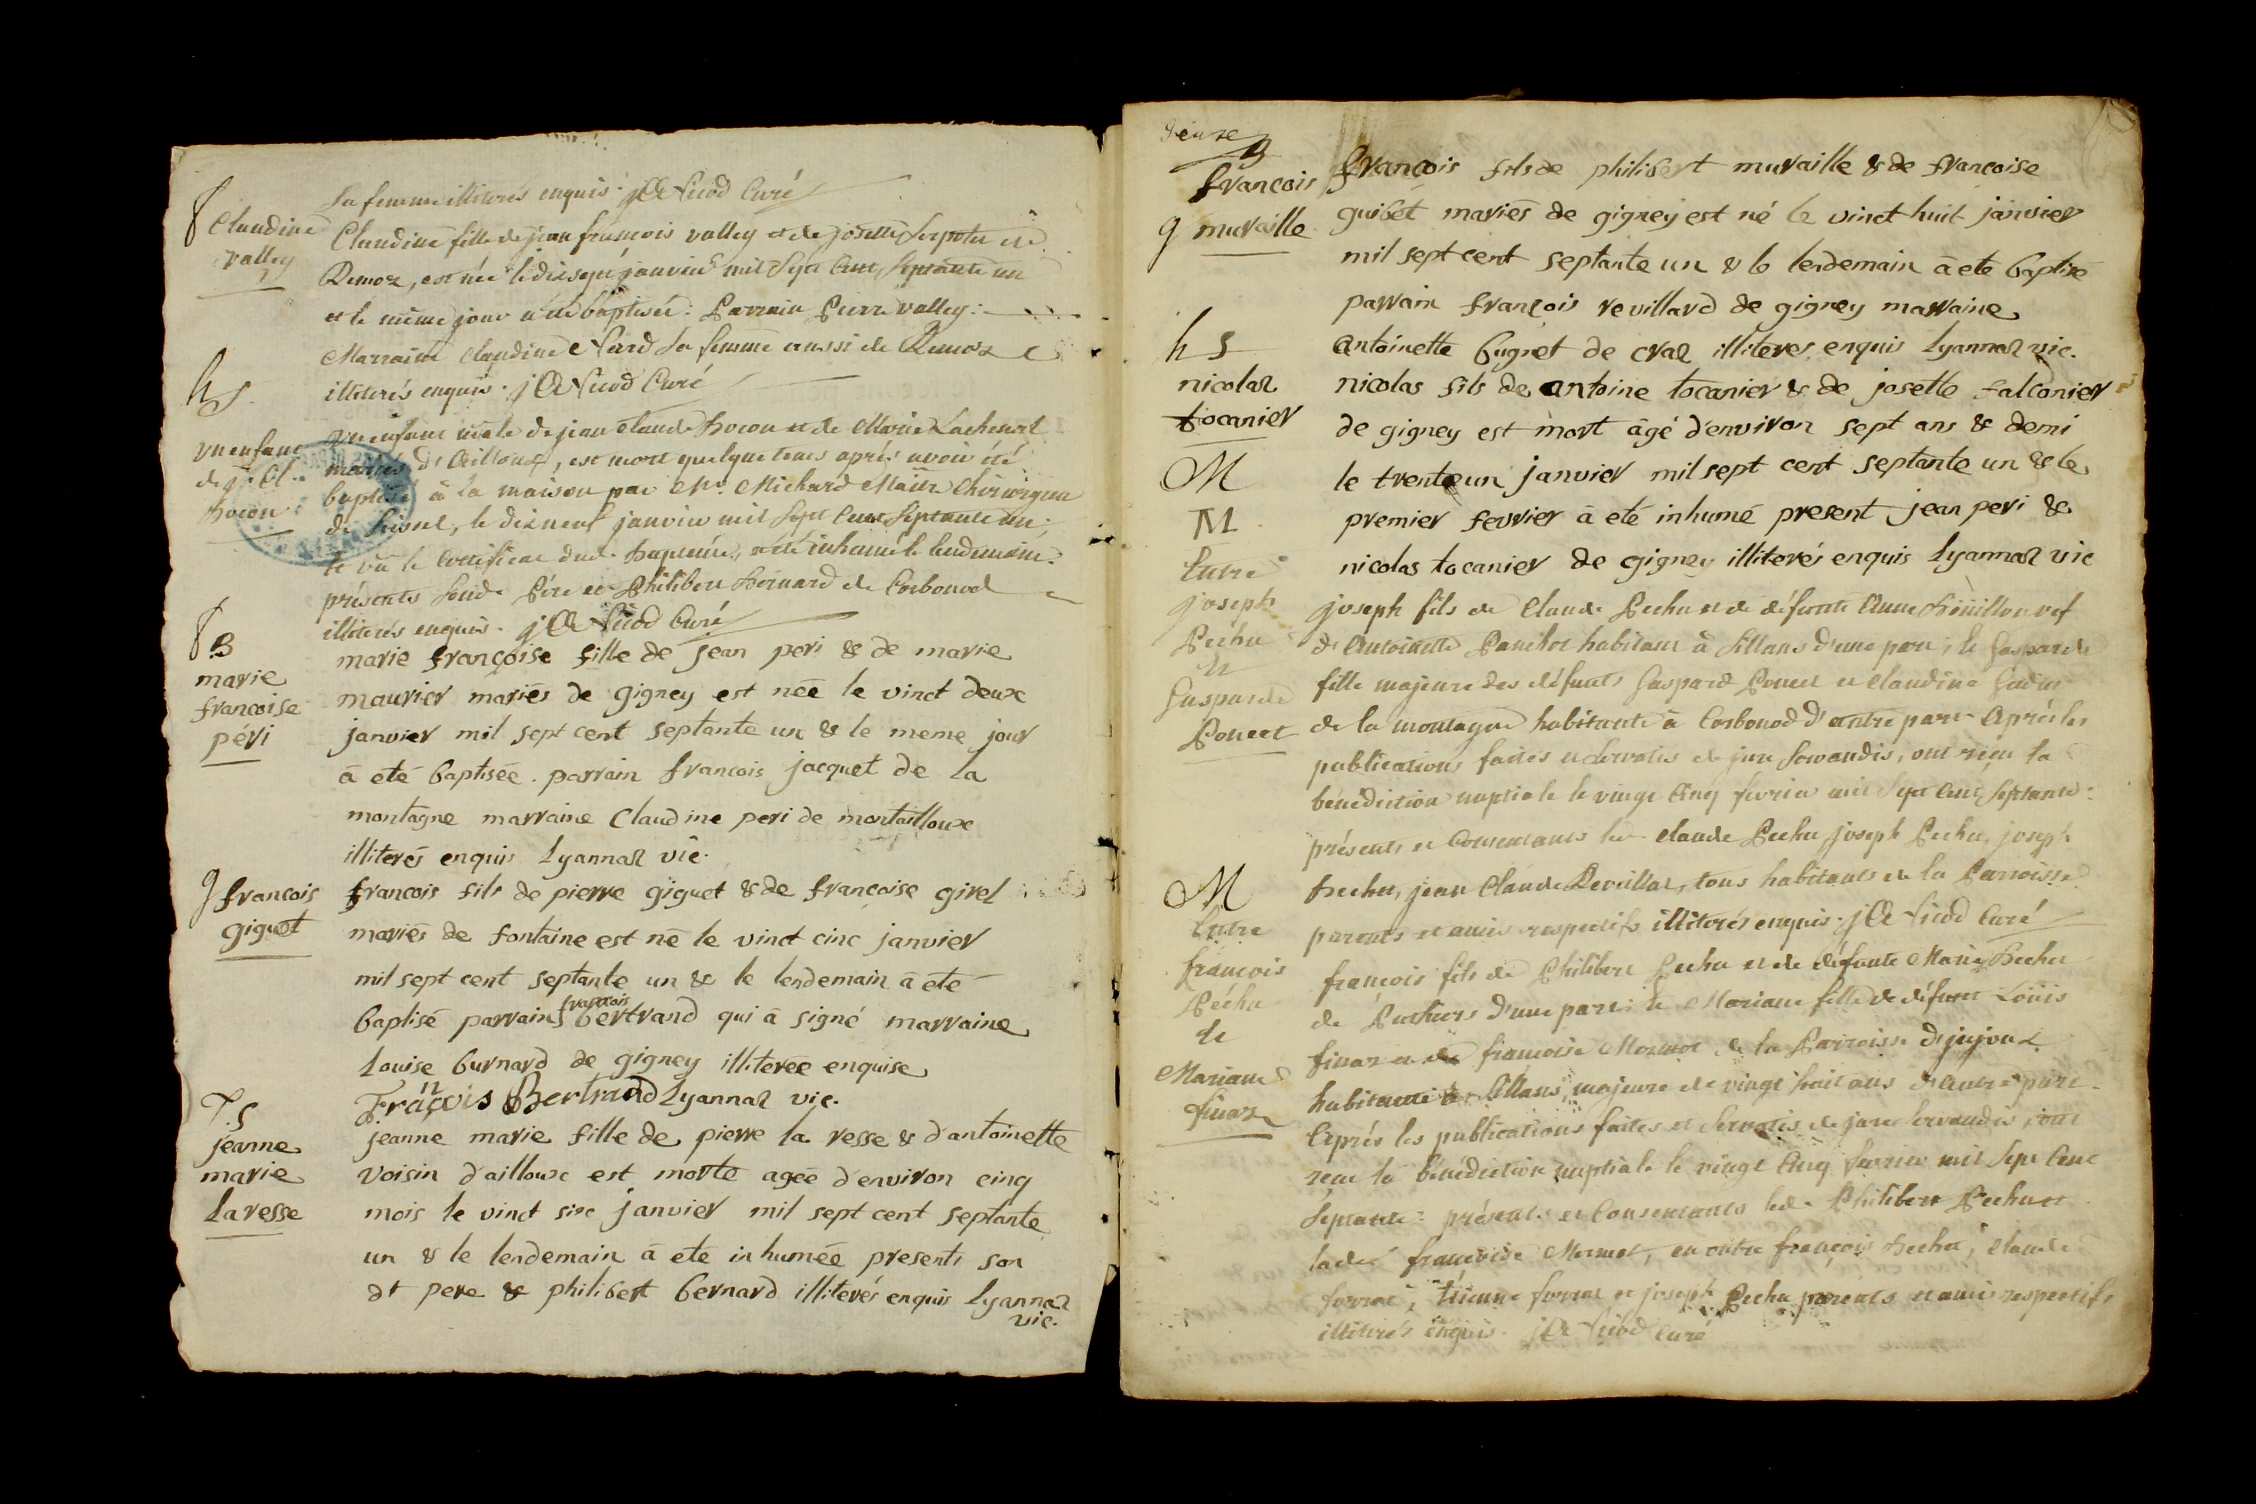 sa femme illiterés enquis. Curé
Claudine
valley
Claudine fille de jean françois valley et de josette
Remoz, est née le dixsept janvier mil sept cent septante un
et le même jour a été baptisée: Parrain Pierre valley:
Marraine Claudine sa femme aussi de Remoz
illiterés enquis. Curé
h S
un enfant
de j. Cl.
un enfant mâle de jean Claude et de Marie
mariés d'Ailloux, est mort quelque tems aprés avoir été
baptisé à la maison par Mr. Michard Maitre Chirurgien
de, le dixneuf janvier mil sept cent septante un:
et vû le certificat dud. a été inhumé le lendemain:
présents Père et Philibert Bernard de Corbonod
illiterés enquis. Curé
8 B
marie
francoise
péri
marie françoise fille de jean peri & de marie
maurier mariés de gigney est née le vinct deux
janvier mil sept cent septante un & le meme jour
à eté baptisée. parrain francois jacquet de la
montagne marraine Claudine peri de montailloux
illiterés enquis Lyannaz vic.
9 françois
giguet
francois fils de pierre giguet & de françoise girel
mariés de fontaine est né le vinct cinc janvier
mil sept cent septante un & le lendemain à eté
baptisé parrain françois bertrand qui à signé marraine
Louise burnard de gigney illiterée enquise
François Bertrand Lyannaz vic.
7. S
jeanne
marie
Laresse
jeanne marie fille de pierre la resse & d'antoinette
voisin d'ailloux est morte agée d'environ cinq
mois le vinct six janvier mil sept cent septante
un & le lendemain à eté inhumée presents son
dt pere & philibert bernard illiterés enquis Lyannaz
vic.
B
françois
9 muraille
françois fils de philibert muraille & de francoise
guibet mariés de gigney est né le vinct huit janvier
mil sept cent septante un & le lendemain à eté baptisé
parrain françois revillard de gigney marraine
antoinette bugnet de craz illiteres enquis Lyannaz vic.
h S
nicolaz
tocanier
nicolas fils de antoine tocanier & de josette falconier
de gigney est mort âgé d'environ sept ans & demi
le trente un janvier mil sept cent septante un & le
premier fevrier à eté inhumé present jean peri &
nicolas tocanier de gigney illiterés enquis Lyannaz vic
M
M
Entre
joseph
Péchu
et
Gasparde
Poncet
joseph fils de Claude Pechu et de défunte Anne vef
d'Antoinette habitant à Sillans d'une part; et Gasparde
fille majeure des défunts Gaspard Poncet et Claudine
de la montagne habitante à Corbonod d'autre part Aprés les
publications faites et servatis de jure servandis, ont réçu la
bénédiction nuptiale le vingt Cinq fevrier mil sept cent septante:
présents et Consentants led. Claude Pechu joseph Pechu, joseph
Pechu, jean Claude, tous habitants de la Parroisse
parents et amis respectifs illiterés enquis. Curé
M
Entre
françois
Péchu
et
Mariane
finaz
françois fils de Philibert Pechu et de défunte Marie Pechu
de Puthiers d'une part; et Mariane fille de défunt Loüis
finaz et de françoise Mermet de la Parroisse d'jnjoux
habitante à Sillans, majeure de vingt huit ans d'Autre part.
Aprés les publications faites et Servatis de jure servandis, ont
reçu la bénédiction nuptiale le vingt Cinq fevrier mil sept Cent
septante: présents et Consentants led. Philibert Pechu et
lade. françoise Mermet, en outre françois Pechu, Claude
et joseph Pechu parents et amis respectifs
illiterés enquis. Curé